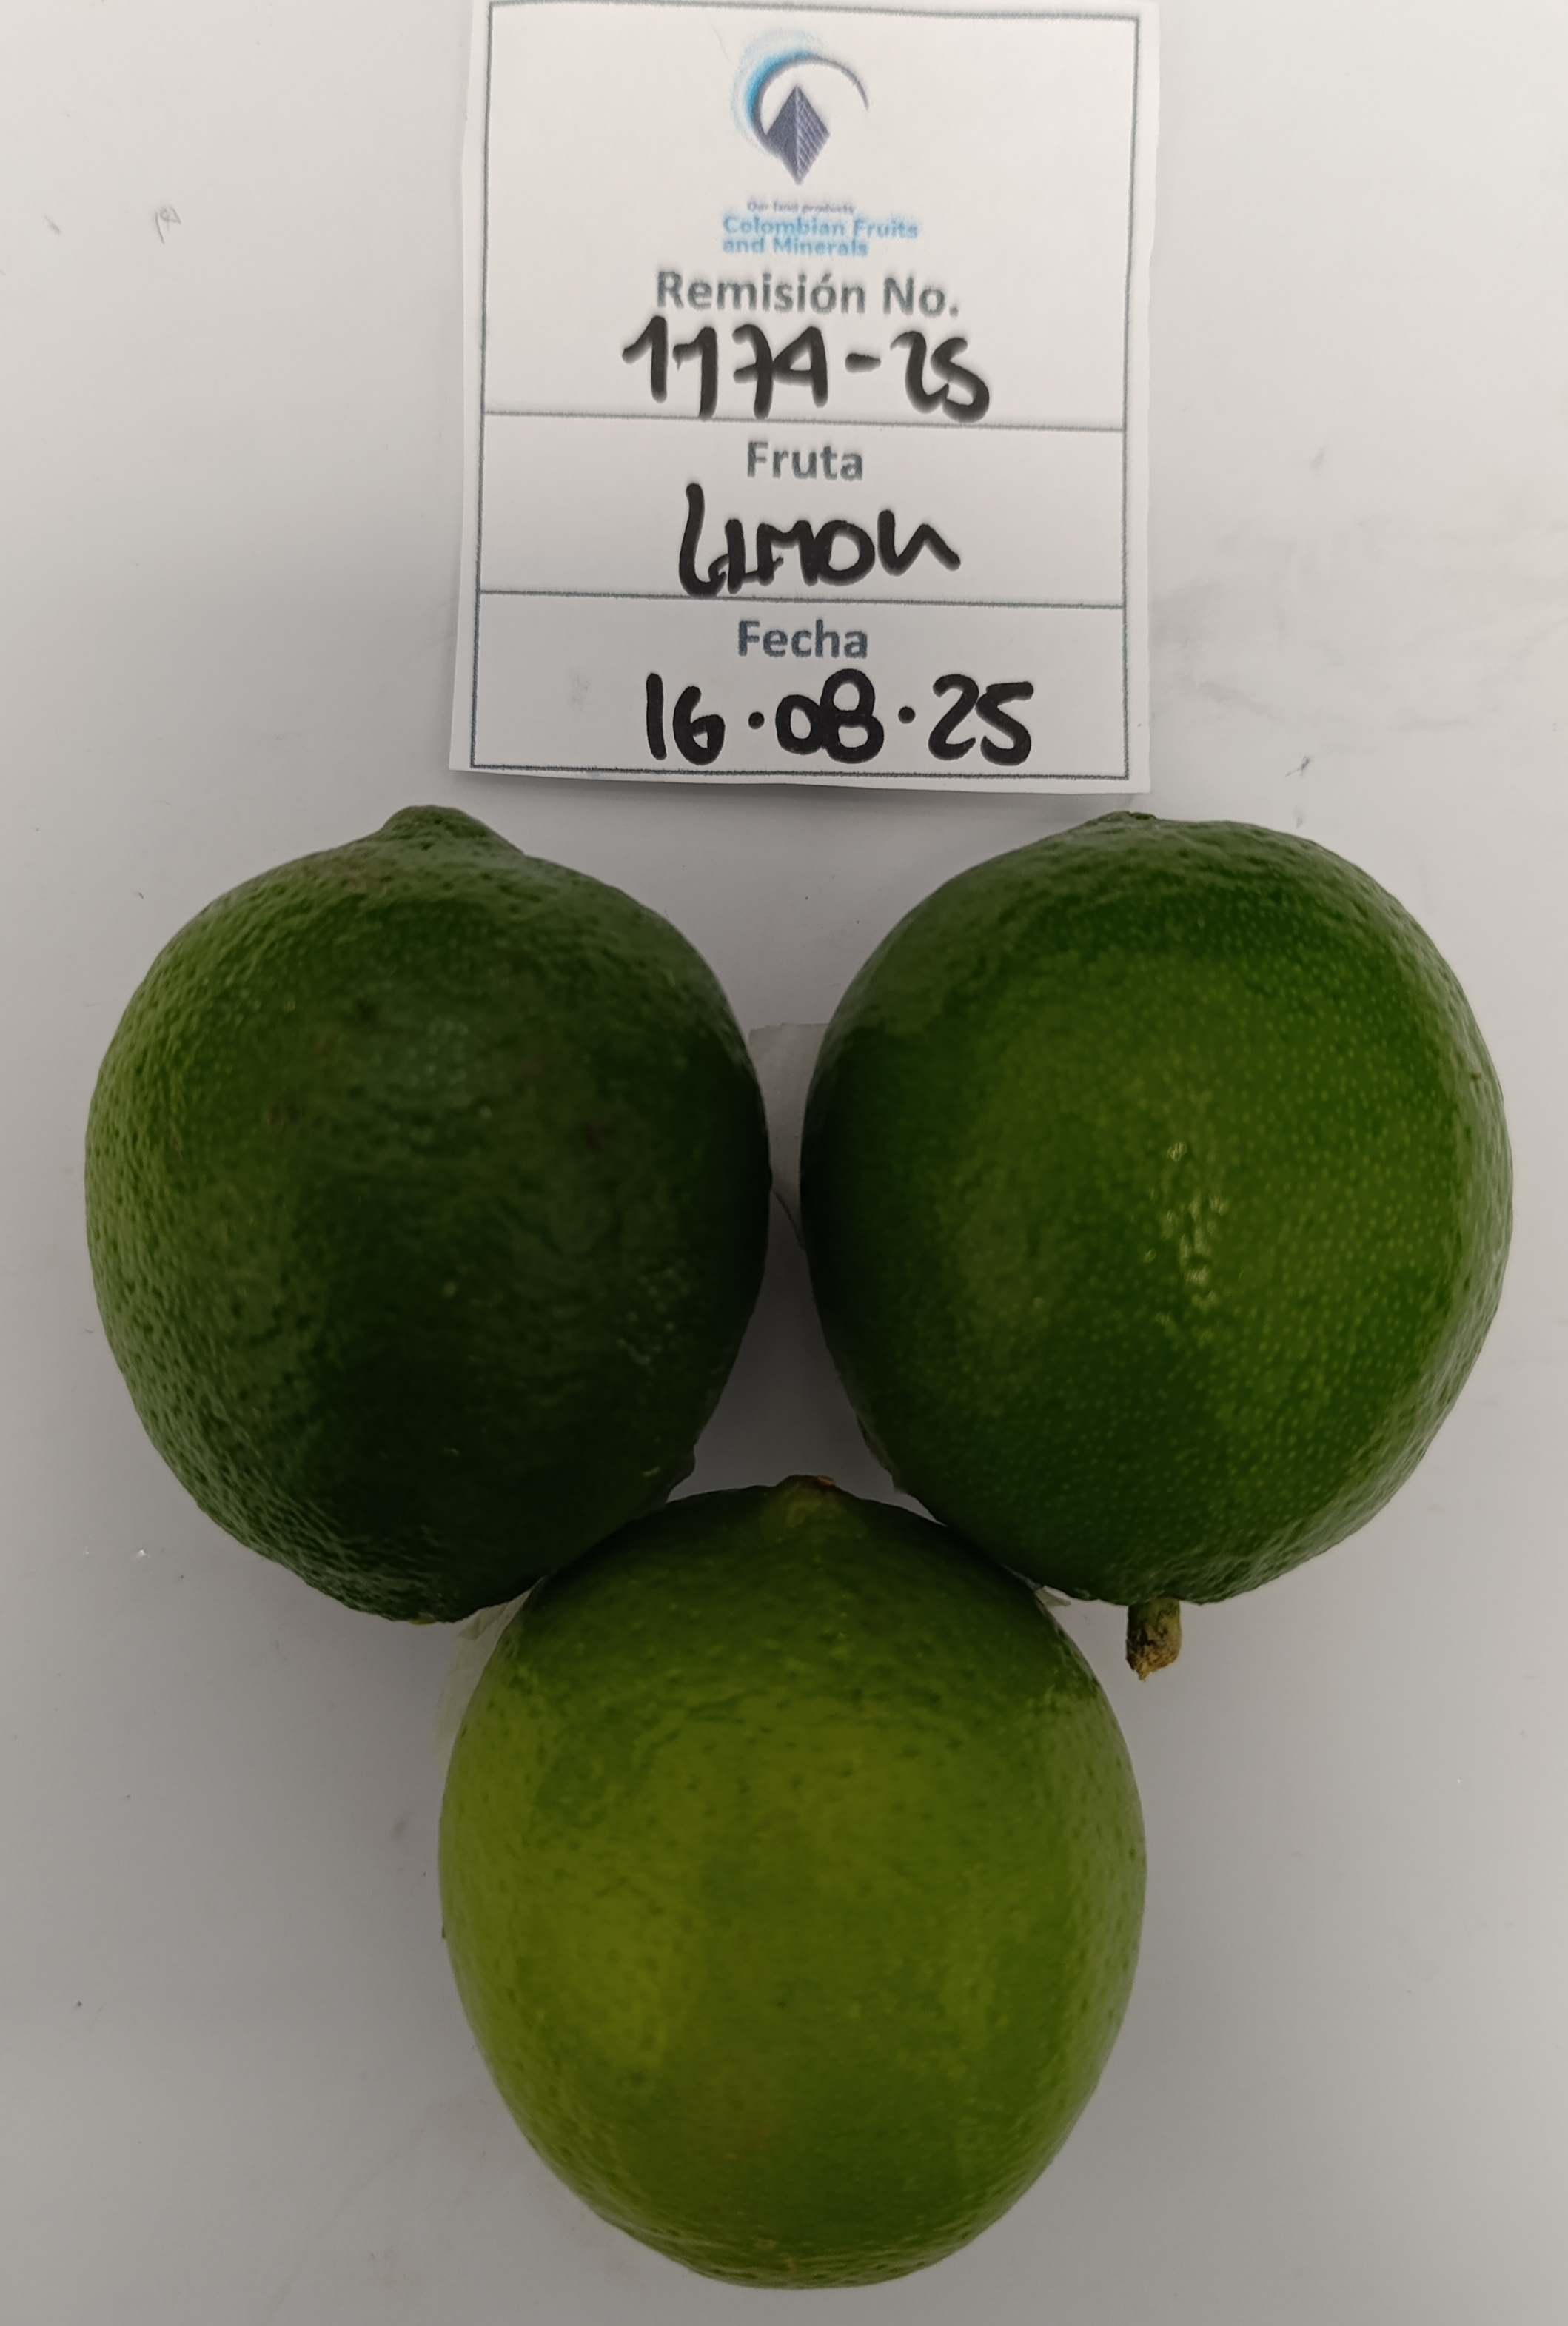 Our land products
Colombian Fruits
and Minerals
Remisión No.
1174-25
Fruta
LIMON
Fecha
16.08.25